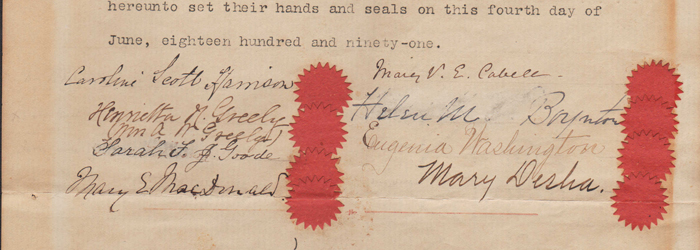 hereunto set their hands and seals on this fourth day of
June, eighteen hundred and ninety-one.
Caroline Scott Harrison
Henrietta N. Greely
(Mrs A W Greely)
Sarah F. J. Goode
Mary E. MacDonald.
Mary V. E. Cabell.
Helen M Boynton
Eugenia Washington
Mary Desha.